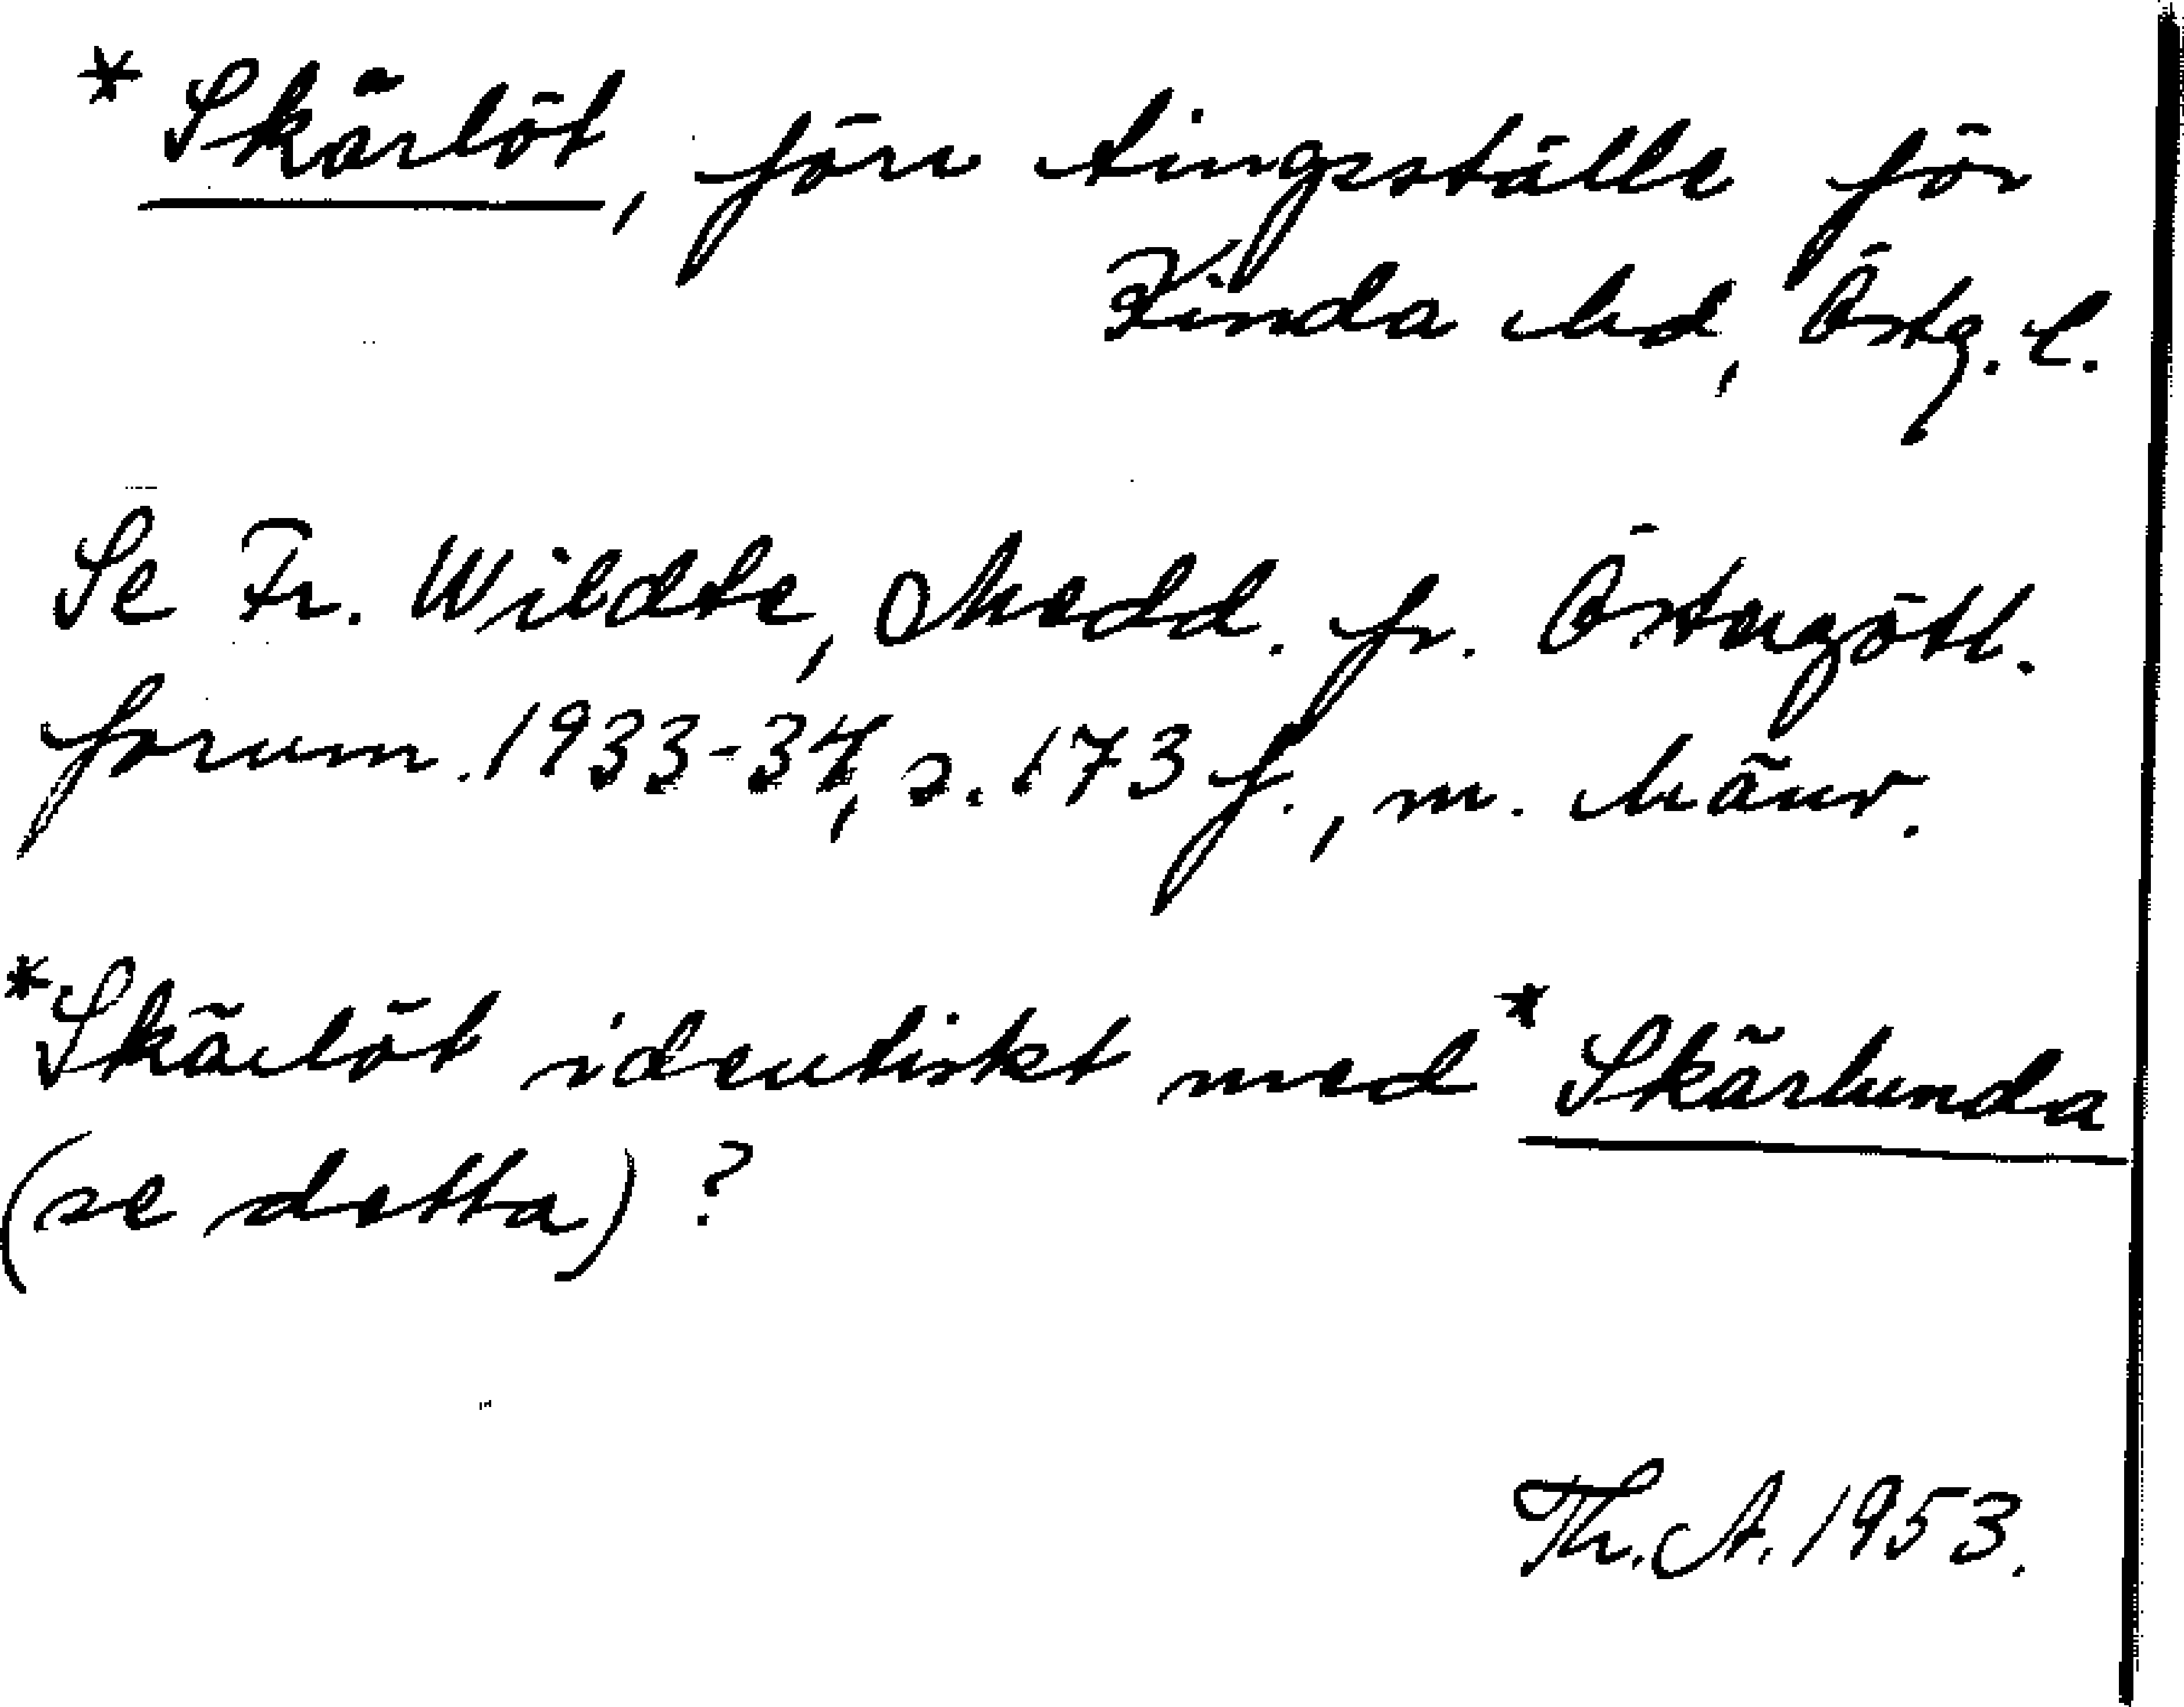 *Skärlöt, förr tingsställe för
Kinda hd, Östg. l.
Se Fr. Wildte, Medd. fr. Östergötl.
fornm. 1933-34, s. 173 f., m. hänv.
*Skärlöt identiskt med *Skärlunda
(se detta)?
Th. A. 1953.